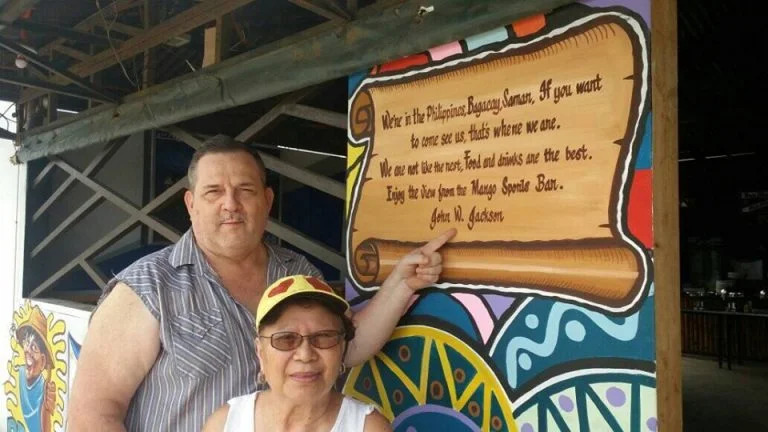 We're in the Philippines, Bagacay, Samar, If you want
to come see us, that's where we are.
We are not like the rest, Food and drinks are the best.
Enjoy the view from the Mango Sports Bar.
John W. Jackson